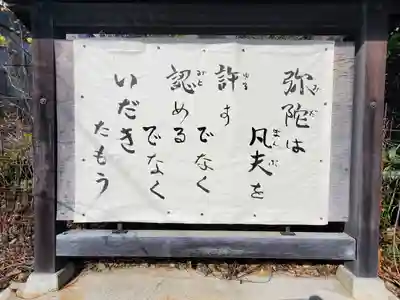 弥陀は
凡夫を
許す
でなく
認める
でなく
いだき
たもう